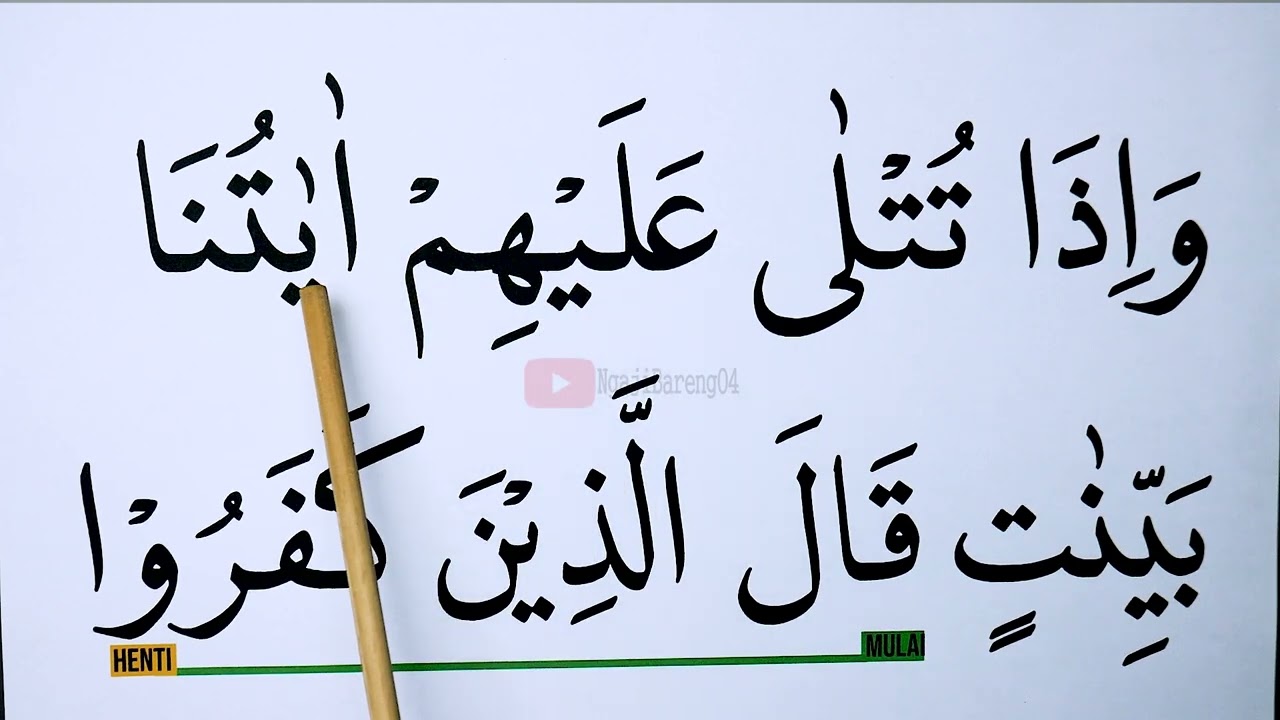 وَاِذَا تُتْلٰى عَلَيْهِمْ اٰيٰتُنَا
NgajiBareng04
بَيِّنٰتٍ قَالَ الَّذِيْنَ كَفَرُوْا
HENTI MULAI